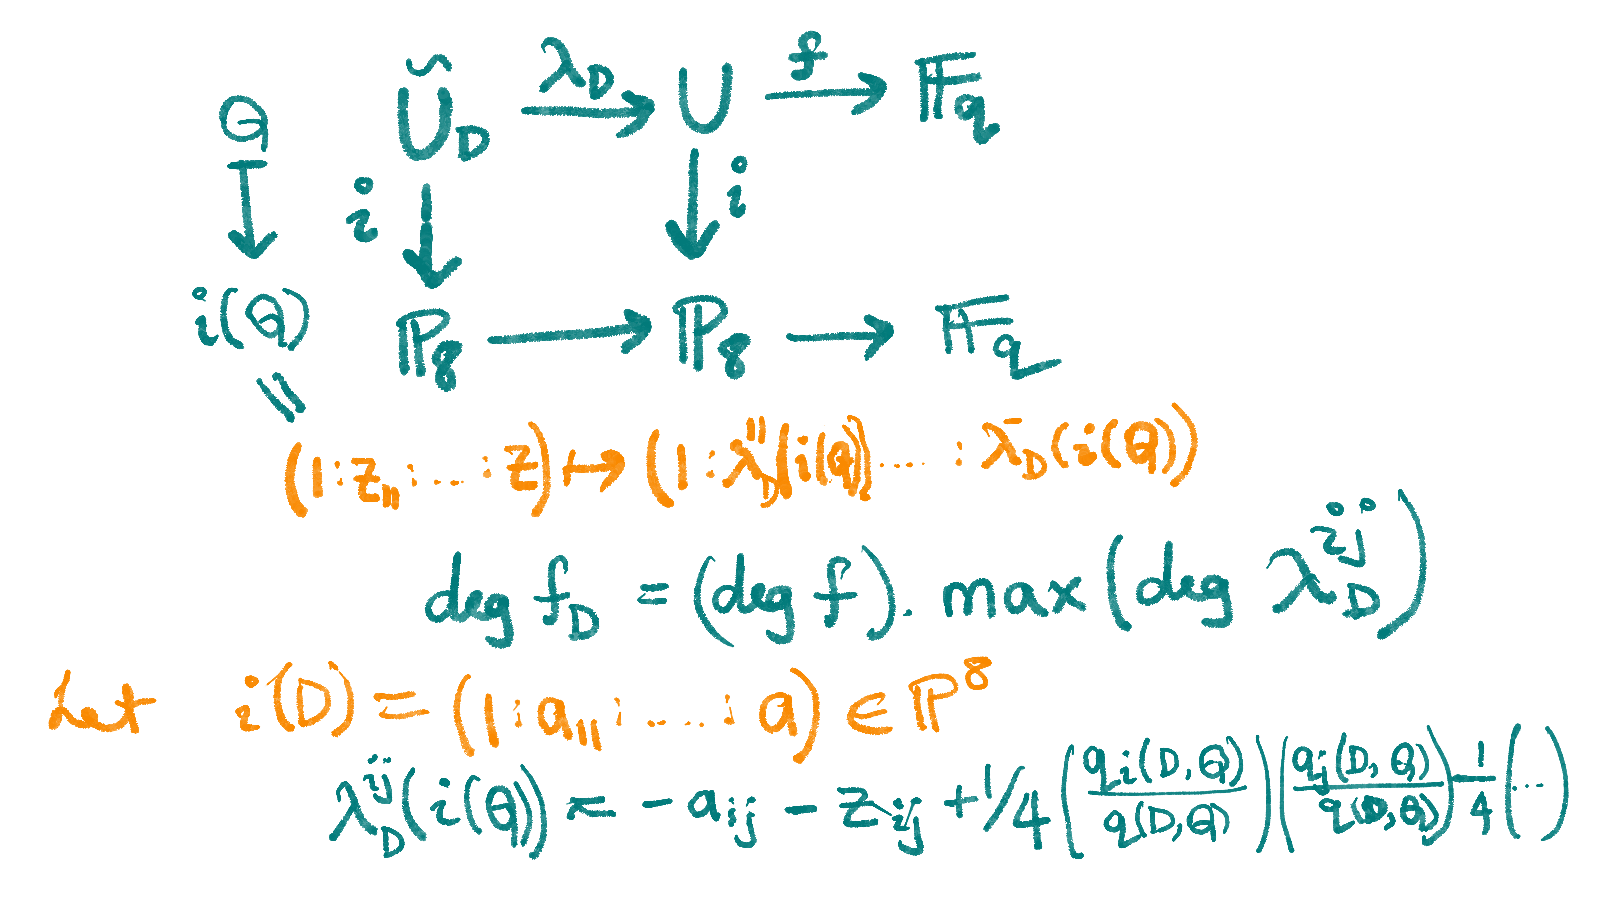 Q Ũ_D λ_D → U f → 𝔽_q
↓ i ↓ ↓ i
i(Q) ℙ_8 → ℙ_8 → 𝔽_q
||
(1 : z_11 : .... : z) ↦ (1 : λ_D^11(i(Q)) .... : λ_D(i(Q)))
deg f_D = (deg f). max (deg λ_D^ij)
Let i(D) = (1 : a_11 : ..... : a) ∈ ℙ^8
λ_D^ij(i(Q)) = - a_ij - z_ij + 1/4 (q_i(D, Q)/q(D,Q)) (q_j(D, Q)/q(D,Q)) - 1/4 (...)